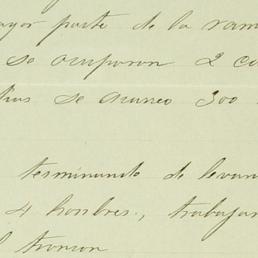 ayor parte de la ram
so ocuparon 2 ca
dias se arancó 300
terminando de levan
4 hombres, trabajan
el troncon